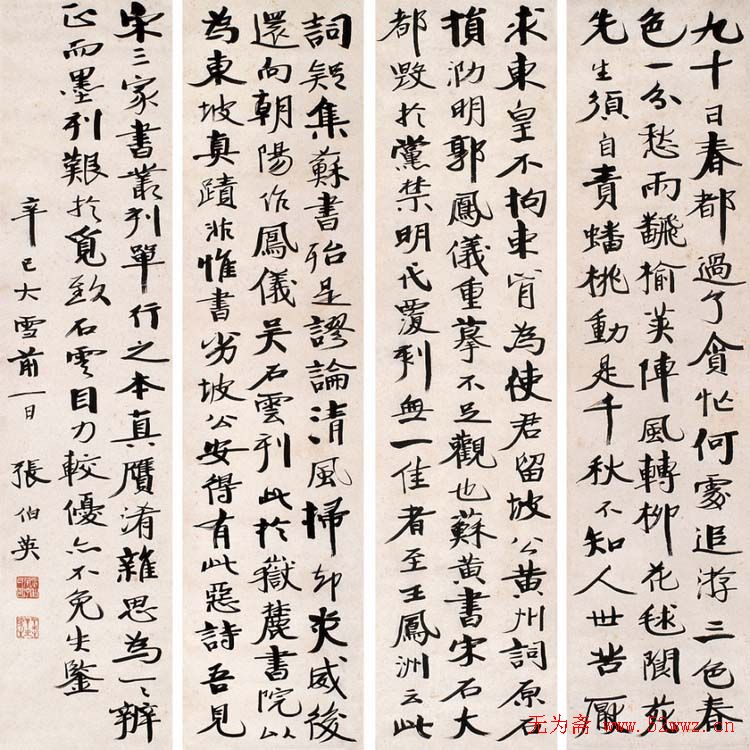 九十日春都過了貪忙何處追游三色春
色一分愁雨飜榆莢陣風轉柳花毬閬苑
先生須自責蟠桃動是千秋不知人世苦厭
求東皇不拘束肯為使君留坡公黃州詞原石
損泐明郭鳳儀重摹不足觀也蘇黃書宋石大
都毀於黨禁明代覆刻無一佳者至王鳳洲云此
詞疑集蘇書殆是謬論清風掃却炎威後
還向朝陽作鳳儀吳石雲刊此於嶽麓書院以
為東坡真蹟非惟書劣坡公安得有此惡詩吾見
宋三家書叢刊單行之本真贗淆雜思為一一辨
正而墨刊艱於覓致石雲目力較優亦不免失鑒
辛巳大雪前一日 張伯英
无为斋 www.52wwz.cn